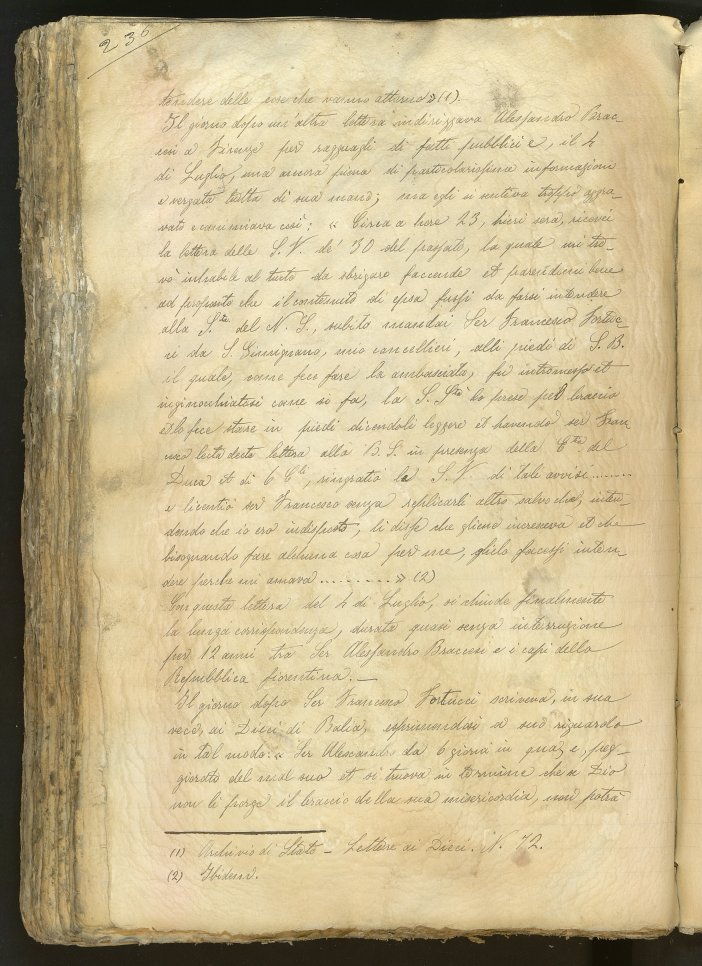 236
tendere delle cose che vanno attorno » (1).
Il giorno dopo un'altra lettera indirizzava Alessandro Brac-
cesi a Firenze per ragguagli di fatti pubblici e, il 4
di Luglio, una ancora piena di particolarissime informazioni
e vergata tutta di sua mano; ma egli si sentiva troppo aggra-
vato e cominciava così: « Circa a hore 23, hieri sera, ricevei
la lettera delle S. V. de' 30 del passato, la quale mi tro-
vò inhabile al tutto da sbrigare faccende et parendomi bene
ad proposito che il contenuto di essa fussi da farsi intendere
alla S.tà del N. S., subito mandai Ser Francesco Fortuc-
ci da S. Gimignano, mio cancellieri, alli piedi di S. B.
il quale, come fece fare la ambasciata, fu intromesso et
inginocchiatosi come si fa, la S. S.tà lo prese pel braccio
et lo fece stare in piedi dicendoli leggere et havendo ser Fran-
cesco lecta decta lettera alla B. S. in presenza della E.tia del
Duca et di 6 C.li, ringratiò le S. V. di tali avvisi.......
e licentiò ser Francesco senza replicarli altro salvo che, inten-
dendo che io ero indisposto, li disse che gliene incresceva et che
bisognando fare alchuna cosa per me, glielo facessi inten-
dere perche mi amava.......... » (2)
Con questa lettera del 4 di Luglio, si chiude finalmente
la lunga corrispondenza, durata quasi senza interruzione
per 12 anni tra Ser Alessandro Braccesi e i capi della
Repubblica fiorentina. —
Il giorno dopo Ser Francesco Fortucci scriveva, in sua
vece, ai Dieci di Balìa, esprimendosi a suo riguardo
in tal modo: « Ser Alexandro da 6 giorni in qua, è, peg-
giorato del mal suo et si truova in termine che se Dio
non li porge il braccio della sua misericordia, non potrà
(1) Archivio di Stato - Lettere ai Dieci. N. 72.
(2) Ibidem.